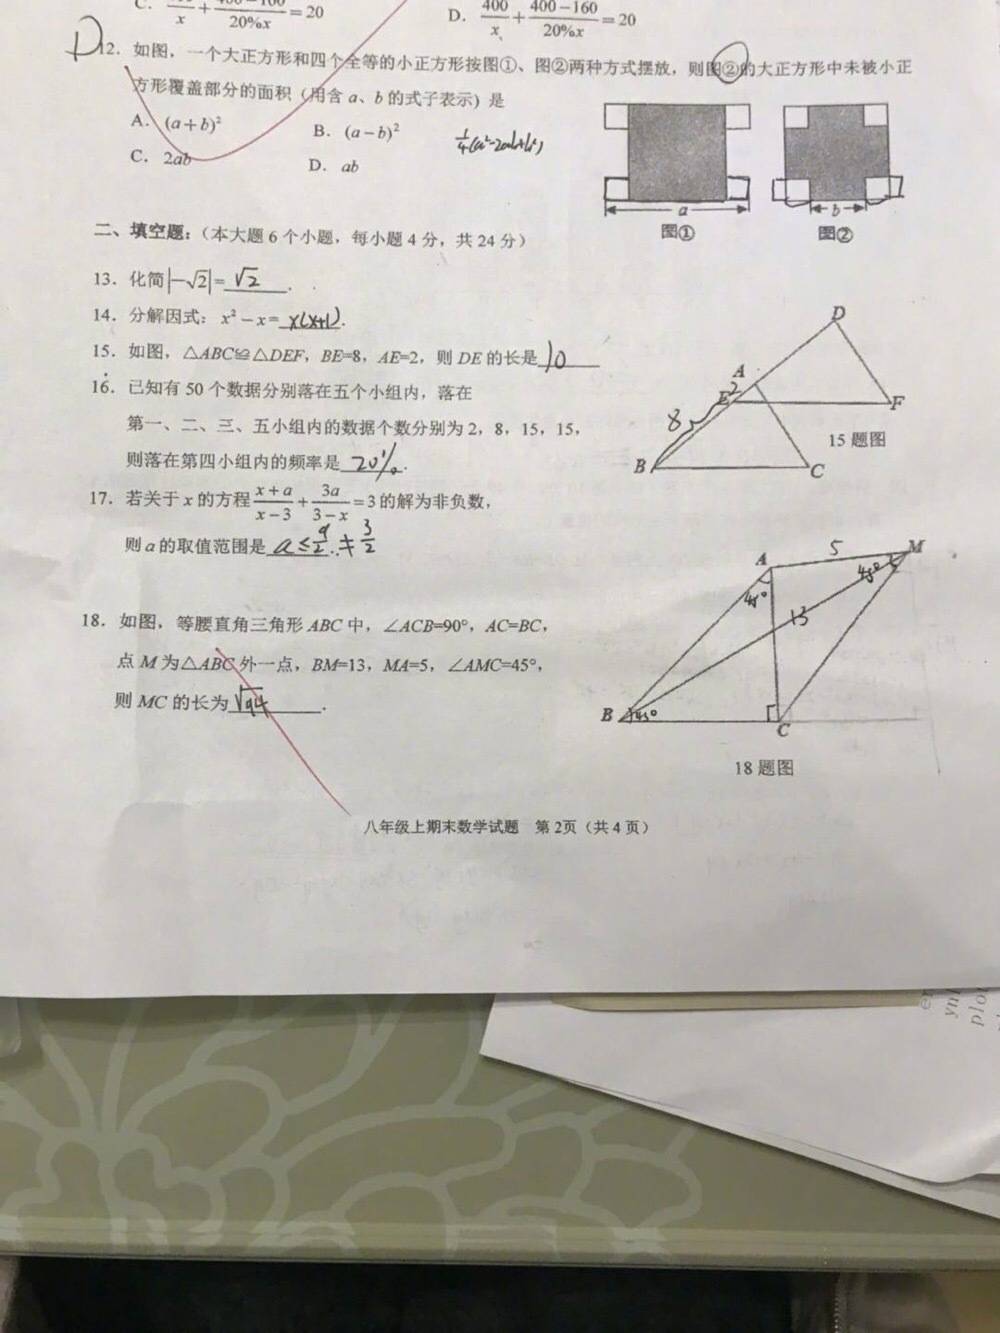 C. x + 20%x = 20
D. 400/x + (400-160)/20%x = 20
D
12. 如图，一个大正方形和四个全等的小正方形按图①、图②两种方式摆放，则图②的大正方形中未被小正
方形覆盖部分的面积（用含 a、b 的式子表示）是
A. (a+b)²
B. (a-b)²
C. 2ab
D. ab
a
图①
b
图②
二、填空题：（本大题 6 个小题，每小题 4 分，共 24 分）
13. 化简|-√2|= √2 .
14. 分解因式：x²-x= x(x+1) .
15. 如图，△ABC≌△DEF，BE=8，AE=2，则 DE 的长是 10
16. 已知有 50 个数据分别落在五个小组内，落在
第一、二、三、五小组内的数据个数分别为 2，8，15，15，
则落在第四小组内的频率是 20% .
D
A
E
2
F
8
B
C
15 题图
17. 若关于 x 的方程 (x+a)/(x-3) + 3a/(3-x) = 3 的解为非负数，
则 a 的取值范围是 a≤9/2 . ≠3/2
18. 如图，等腰直角三角形 ABC 中，∠ACB=90°，AC=BC，
点 M 为△ABC 外一点，BM=13，MA=5，∠AMC=45°，
则 MC 的长为 √94 .
A
5
M
45°
45°
13
B
45°
C
18 题图
八年级上期末数学试题 第 2页（共 4 页）